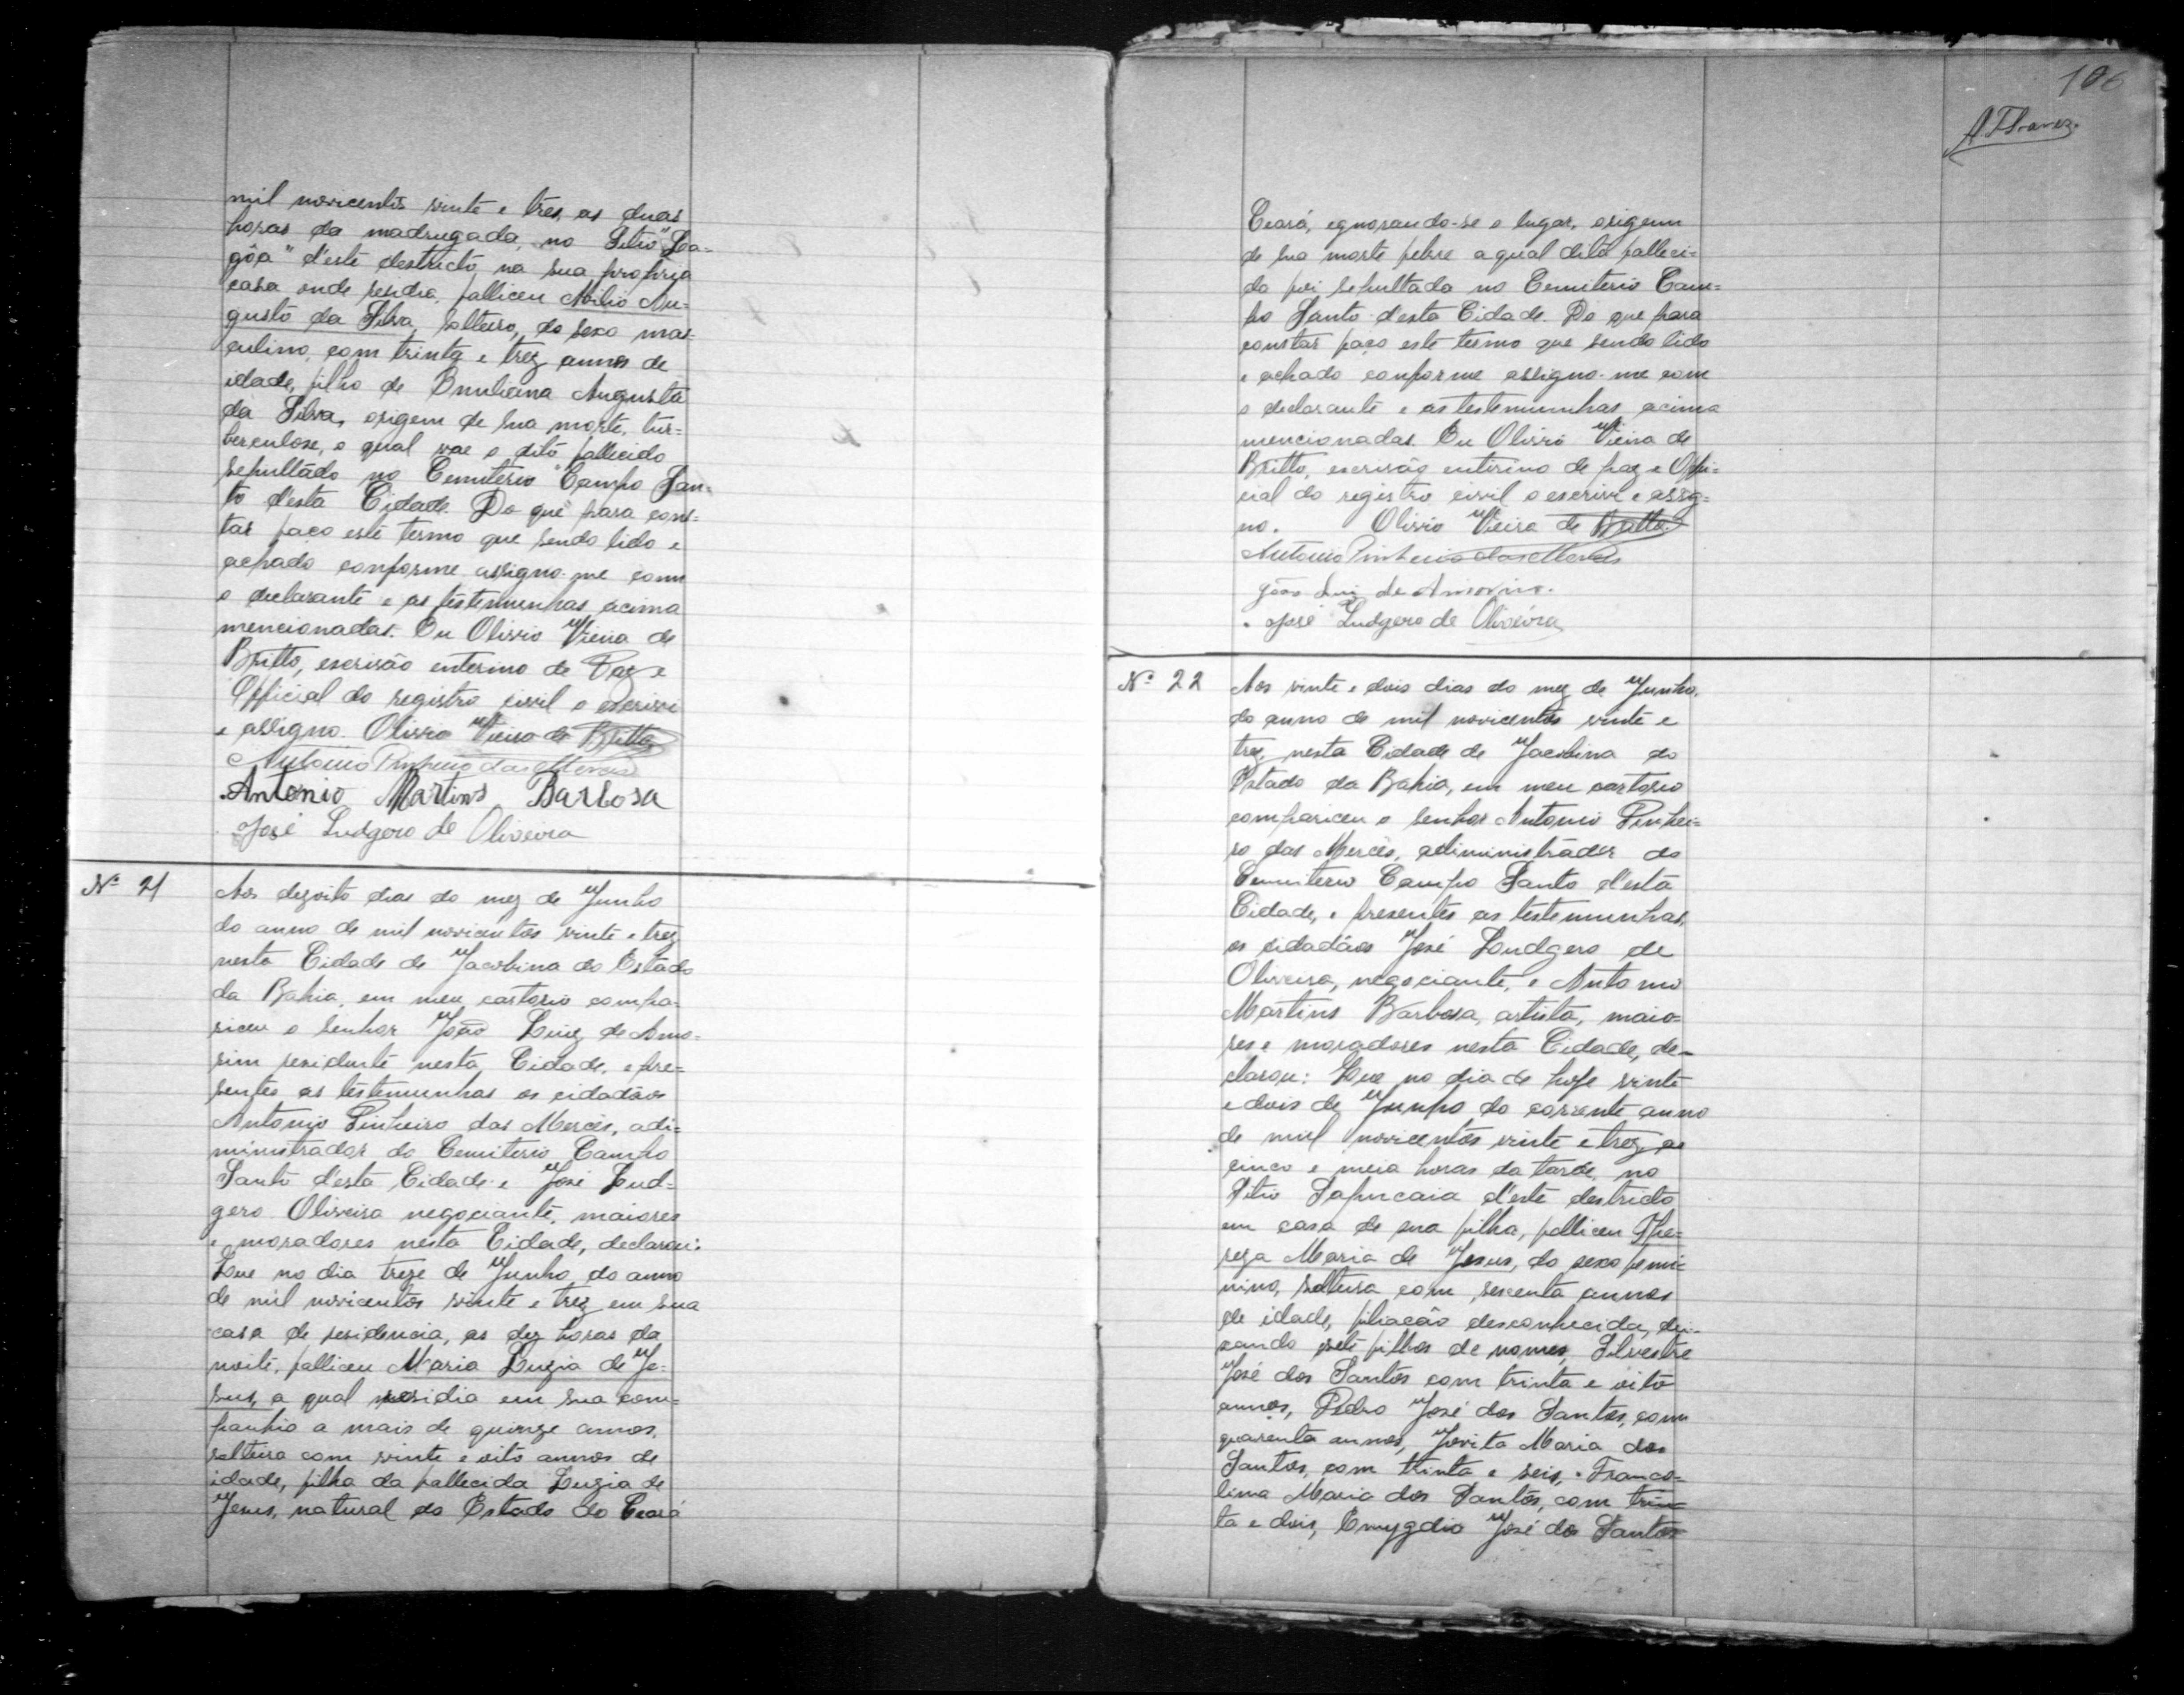 mil novicentos vinte e tres, as duas
horas da madrugada, no Sitio "La-
gôa" d'este destricto, na sua propria
casa onde residia, falliceu Abilio Au-
gusto da Silva, solteiro, do sexo mas-
culino, com trinta e trez annos de
idade, filho de Emiliana Augusta
da Silva, origem de sua morte, tur-
berculose, o qual vae o dito fallicido
sepultado no Cemiterio "Campo San-
to d'esta Cidade. Do que para cons-
tar faço este termo que sendo lido e
achado conforme assigno-me com
o declarante e as testemunhas acima
mencionadas. Eu Olivio Vieira de
Britto, escrivão enterino de Paz e
Official do registro civil o escrivi
e assigno. Olivio Vieira de Britto
Antonio Pinheiro das Mercês
Antonio Martins Barbosa
José Ludgero de Oliveira
Nº 21
Aos dezoito dias do mez de Junho
do anno de mil novicentos vinte e trez
nesta Cidade de Jacobina do Estado
da Bahia, em meu cartorio compa-
riceu o senhor João Luiz de Amo-
rim residente nesta Cidade, e pre-
sentes as testemunhas os cidadãos
Antonio Pinheiro das Mercês, adi-
ministrador do Cemiterio Campo
Santo d'esta Cidade e José Lud-
gero Oliveira negociante, maiores
e moradores nesta Cidade, declarou:
Que no dia treze de Junho do anno
de mil novicentos vinte e trez em sua
casa de residencia, as dez horas da
noite, falliceu Maria Luzia de Je-
sus, a qual residia em sua com-
panhia a mais de quinze annos,
solteira com vinte e oito annos de
idade, filha da fallecida Luzia de
Jesus, natural do Estado do Ceará
106
Ceará, egnorando-se o lugar, origem
de sua morte febre a qual dita falleci-
da foi sepultada no Cemiterio Cam-
po Santo d'esta Cidade. Do que para
constar faço este termo que sendo lido
e achado conforme assigno-me com
o declarante e as testemunhas acima
mencionadas. Eu Olivio Vieira de
Britto, escrivão enterino de paz e Offi-
cial do registro civil o escrivi e assig-
no. Olivio Vieira de Britto
Antonio Pinheiro das Mercês
João Luiz de Amorim.
José Ludgero de Oliveira
Nº 22
Aos vinte e dois dias do mez de Junho,
do anno de mil novicentos vinte e
trez, nesta Cidade de Jacobina do
Estado da Bahia, em meu cartorio
compariceu o senhor Antonio Pinhei-
ro das Mercês, adiministrador do
Cemiterio Campo Santo d'esta
Cidade, e presentes as testemunhas,
os cidadãos José Ludgero de
Oliveira, negociante, e Antonio
Martins Barbosa, artista, maio-
res e moradores nesta Cidade, de-
clarou: Que no dia de hoje vinte
e dois de Junho do corrente anno
de mil novicentos vinte e trez, as
cinco e meia horas da tarde, no
Sitio Sapucaia d'este destricto
em casa de sua filha, falliceu The-
reza Maria de Jesus, do sexo femi-
nino, solteira com sescenta annos
de idade, filiacão desconhecida, dei-
cando sete filhos de nomes, Silvestre
José dos Santos com trinta e oito
annos, Pedro José dos Santos, com
quarenta annos, Jovita Maria dos
Santos, com trinta e seis, Franco-
lina Maria dos Santos, com trin-
ta e dois, Emygdio José dos Santos